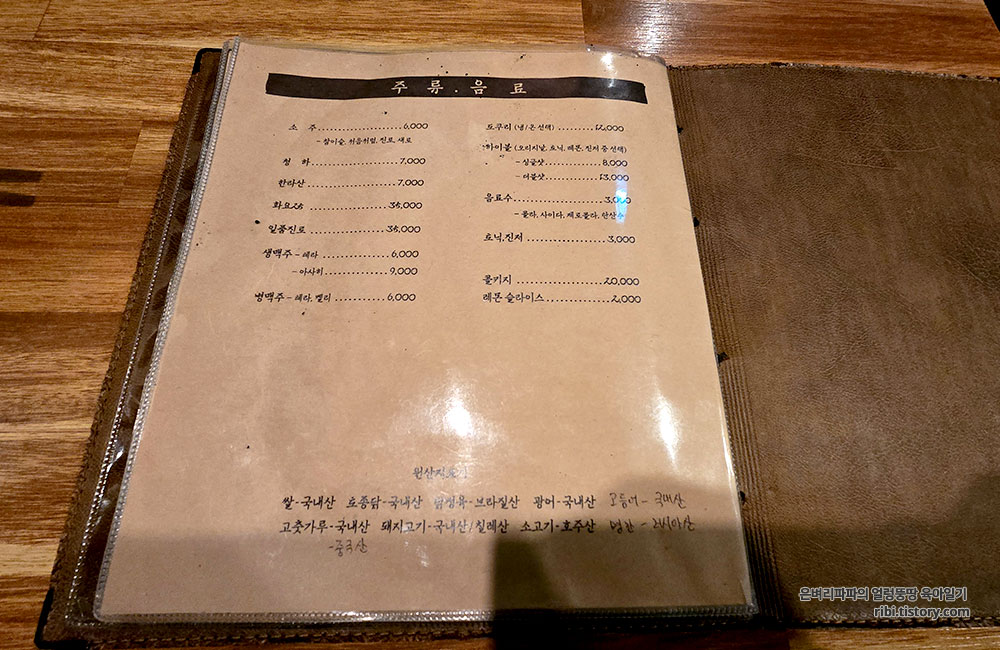 주 류 . 음 료
소 주 ........ 6,000
- 참이슬, 처음처럼, 진로, 새로
청 하 ........ 7,000
한라산 ........ 7,000
화요25 ........ 35,000
일품진로 ........ 35,000
생맥주 - 테라 ........ 6,000
- 아사히 ........ 9,000
병맥주 - 테라, 켈리 ........ 6,000
도쿠리 (냉/온 선택) ........ 12,000
하이볼 (오리지날, 토닉, 레몬, 진저 중 선택)
- 싱글샷 ........ 8,000
- 더블샷 ........ 13,000
음료수 ........ 3,000
- 콜라, 사이다, 제로콜라, 탄산수
토닉, 진저 ........ 3,000
콜키지 ........ 20,000
레몬 슬라이스 ........ 2,000
원산지표시
쌀-국내산 토종닭-국내산 닭정육-브라질산 광어-국내산 고등어 - 국내산
고춧가루-국내산 돼지고기-국내산/칠레산 소고기-호주산 명란 - 러시아산
-중국산
은벼리파파의 얼렁뚱땅 육아일기
ribi.tistory.com